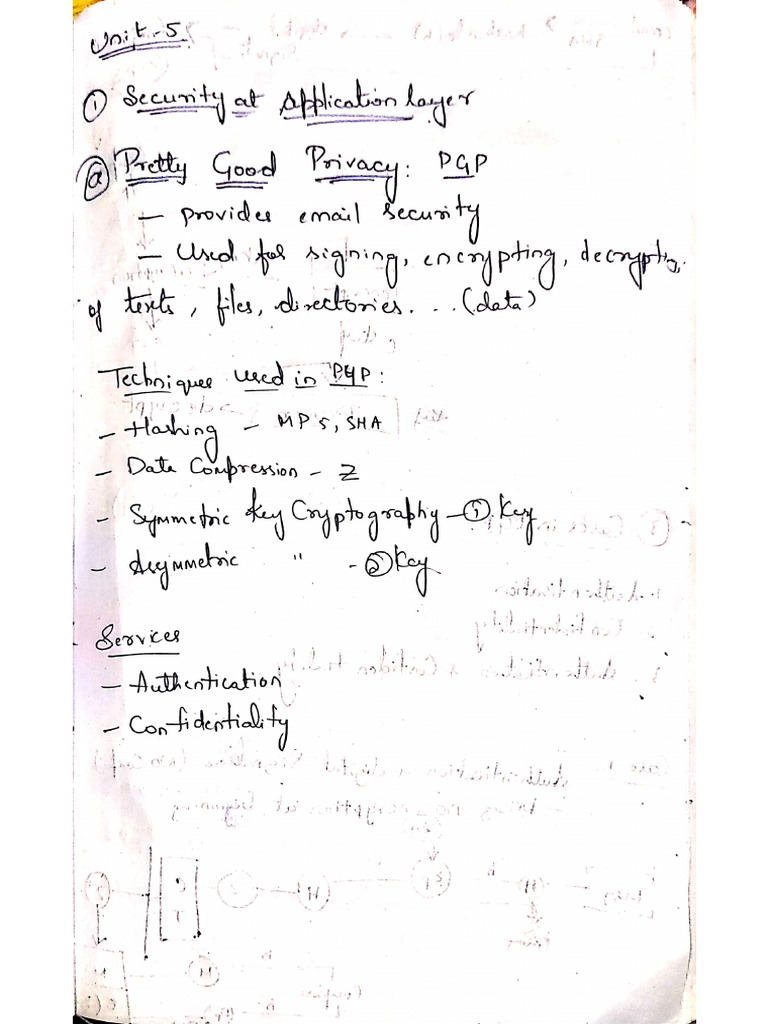 Unit-5
① Security at Application layer
ⓐ Pretty Good Privacy: PGP
– provides email security
– Used for signing, encrypting, decrypting
of texts, files, directories.... (data)
Techniques used in PGP:
– Hashing – MD5, SHA
– Data Compression – Z
– Symmetric Key Cryptography – ① Key
– Asymmetric " – ② Key
Services
– Authentication
– Confidentiality